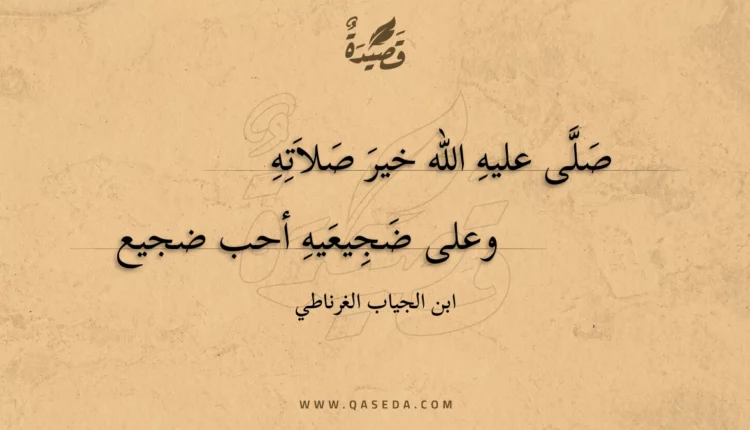 قَصِيْدَةٌ
صَلَّى عليهِ الله خيرَ صَلاَتِهِ
وعلى ضَجِيعَيهِ أحب ضجيع
ابن الجياب الغرناطي
WWW.QASEDA.COM